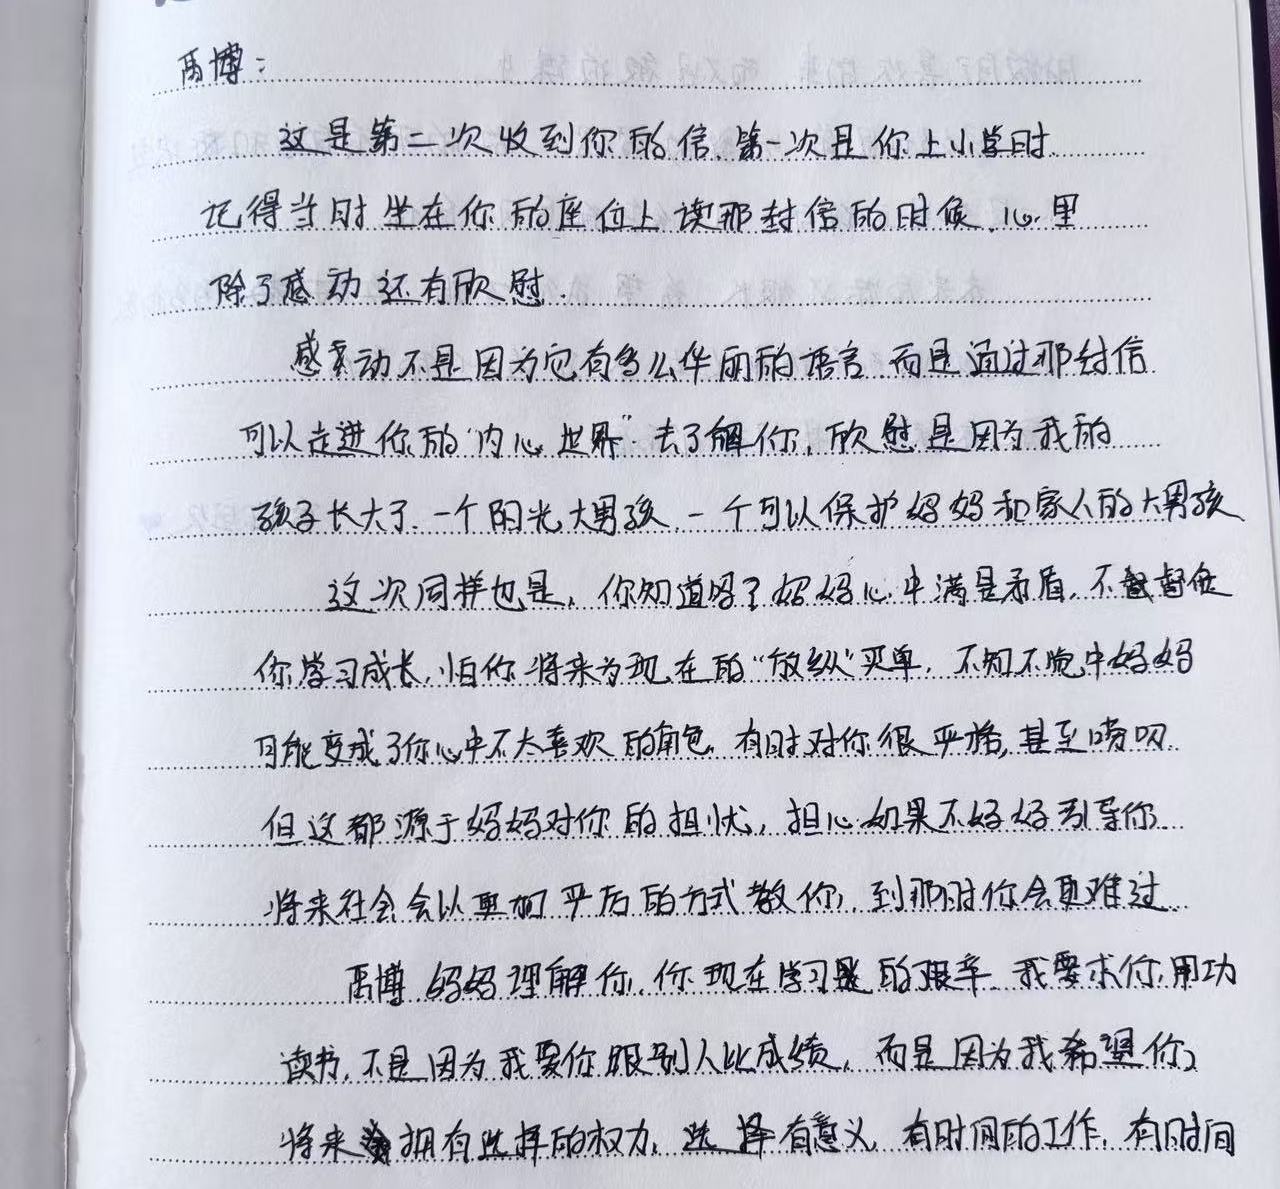 禹博：
这是第二次收到你的信，第一次是你上小学时.
记得当时坐在你的座位上读那封信的时候，心里
除了感动还有欣慰.
感动不是因为它有多么华丽的语言 而是通过那封信
可以走进你的"内心世界"去了解你，欣慰是因为我的
孩子长大了.一个阳光大男孩，一个可以保护妈妈和家人的大男孩
这次同样也是，你知道吗？妈妈心中满是矛盾，不督促
你学习成长，怕你将来为现在的"放纵"买单，不知不觉中妈妈
可能变成了你心中不太喜欢的角色，有时对你很严格，甚至唠叨
但这都源于妈妈对你的担忧，担心如果不好好引导你
将来社会会以更加严厉的方式教你，到那时你会更难过
禹博 妈妈理解你，你现在学习的艰辛 我要求你用功
读书，不是因为我要你跟别人比成绩，而是因为我希望你，
将来拥有选择的权力，选择有意义，有时间的工作，有时间